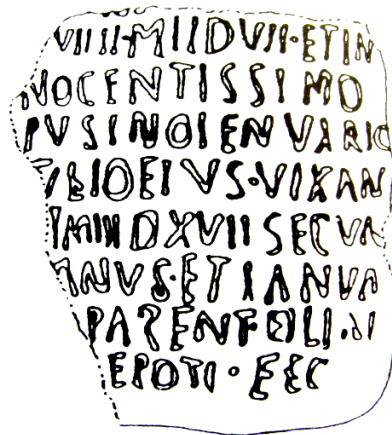 VIIII·MIIDVII·ETIN
NOCENTISSIMO
PVSINOIENVARIO
FILIOEIVS·VIXAN
IMIIIDXVIISECVN
ANVS·ETIANVA
PARENT FILI·N
EPOTI·FEC